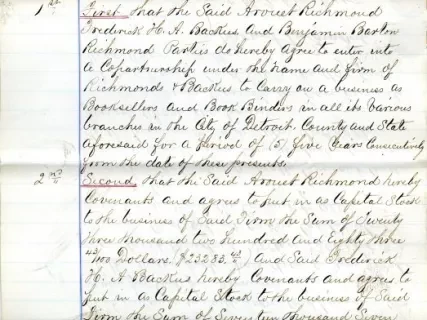 1st First, that the Said Arouet Richmond
Frederick H. A. Backus and Benjamin Barton
Richmond Parties do hereby agree to enter into
a Copartnership under the name and firm of
Richmonds & Backus to Carry on a business as
Booksellers and Book Binders in all its various
branches in the City of Detroit. County and State
aforesaid for a Period of (5) five Years Consecutively
from the date of these presents.
2nd Second, that the Said Arouet Richmond hereby
Covenants and agrees to put in as Capital Stock
to the business of Said Firm the Sum of Twenty
three thousand two hundred and Eighty three
43/100 Dollars, ($23283.43) and Said Frederick
H. A Backus hereby Covenants and agrees to
put in as Capital Stock to the business of Said
Firm the Sum of Seven ten thousand Seven